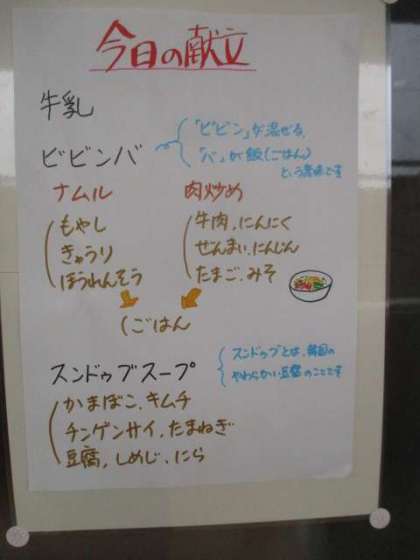 今日の献立
牛乳
ビビンバ
「ビビン」が混ぜる、
「バ」が飯(ごはん)
という意味です
ナムル
もやし
きゅうり
ほうれんそう
肉炒め
牛肉、にんにく
ぜんまい、にんじん
たまご、みそ
ごはん
スンドゥブスープ
スンドゥブとは、韓国の
やわらかい豆腐のことです
かまぼこ、キムチ
チンゲンサイ、たまねぎ
豆腐、しめじ、にら